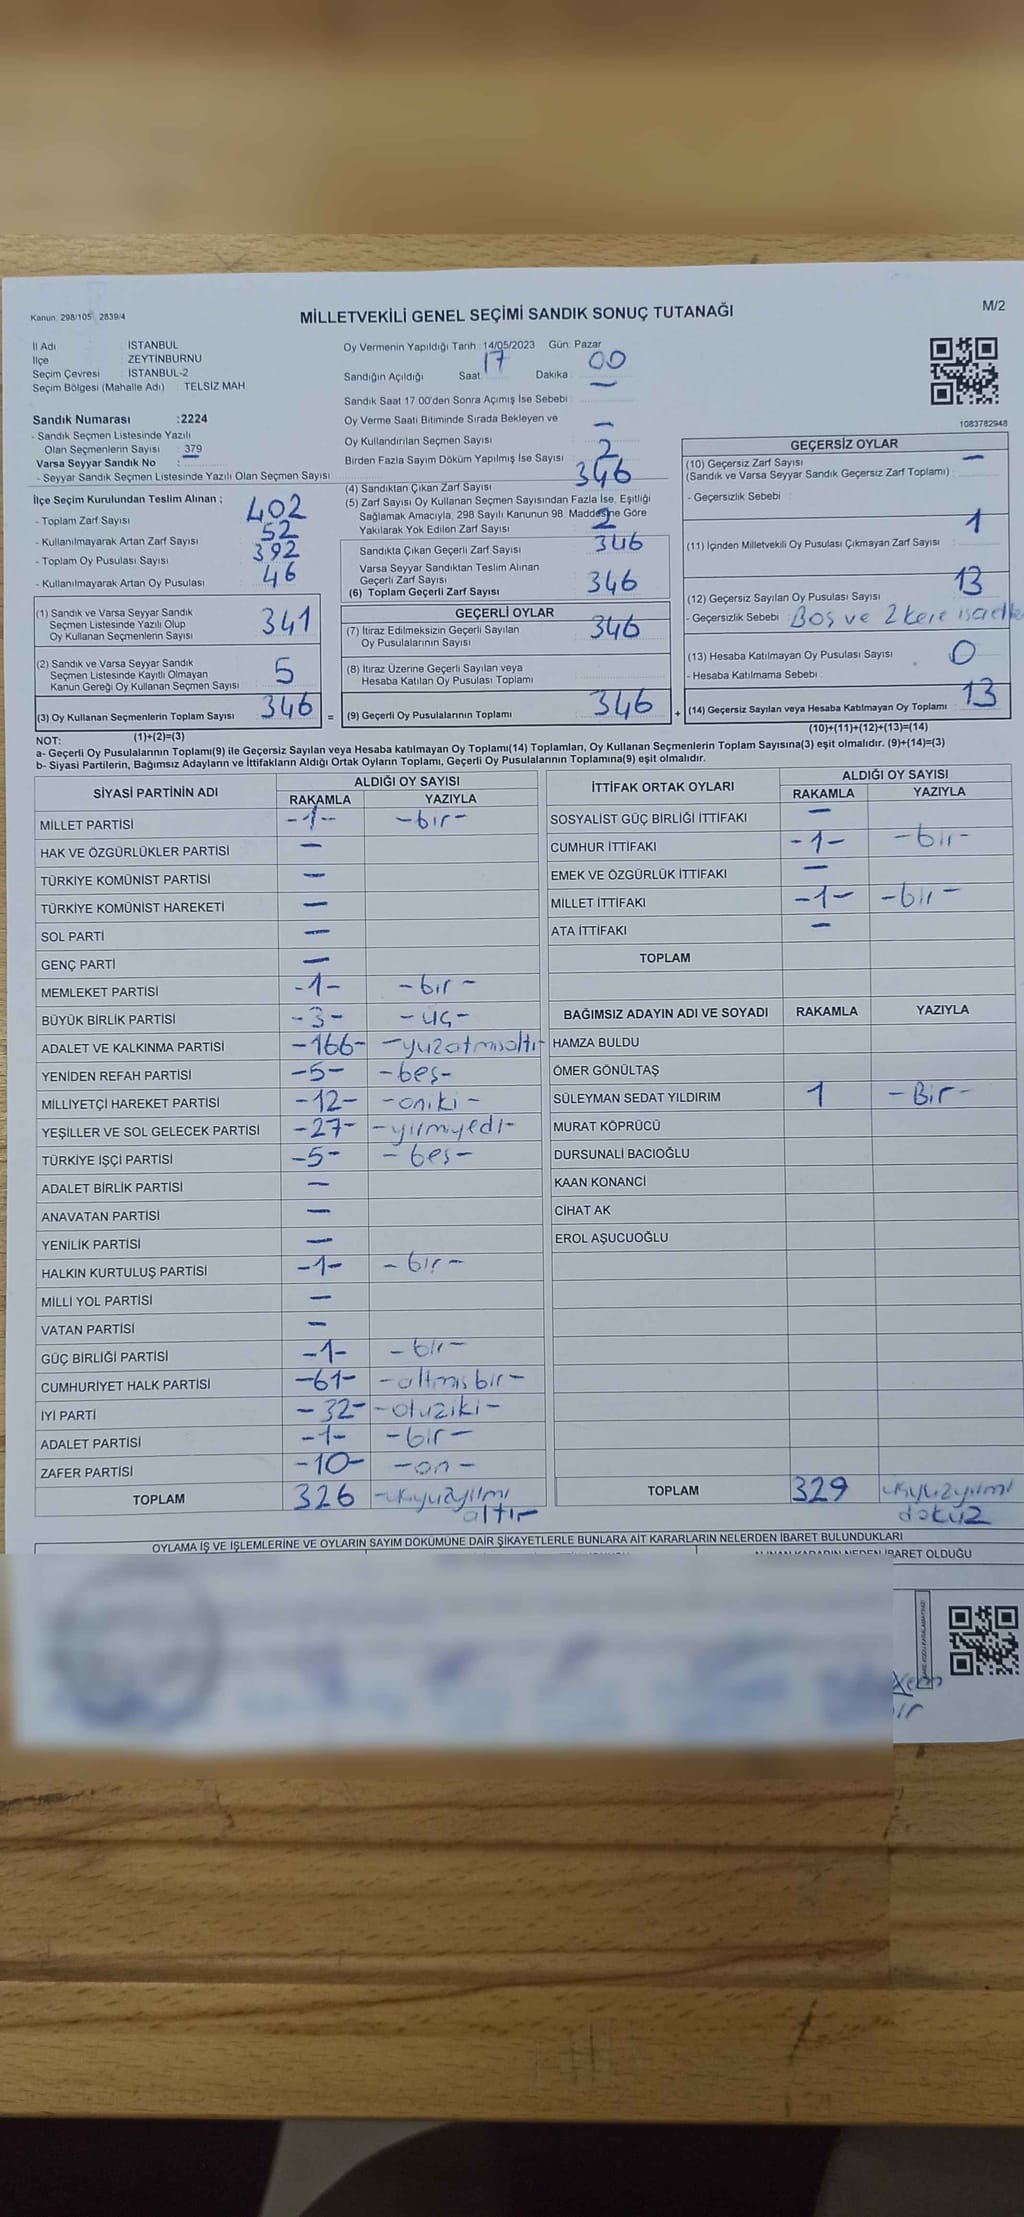 Kanun: 298/105 2839/4
MİLLETVEKİLİ GENEL SEÇİMİ SANDIK SONUÇ TUTANAĞI
M/2
İl Adı : İSTANBUL
İlçe : ZEYTİNBURNU
Seçim Çevresi : İSTANBUL-2
Seçim Bölgesi (Mahalle Adı) : TELSİZ MAH.
Sandık Numarası :2224
- Sandık Seçmen Listesinde Yazılı
Olan Seçmenlerin Sayısı : 379
Varsa Seyyar Sandık No :
- Seyyar Sandık Seçmen Listesinde Yazılı Olan Seçmen Sayısı
İlçe Seçim Kurulundan Teslim Alınan ;
- Toplam Zarf Sayısı 402
- Kullanılmayarak Artan Zarf Sayısı 52
- Toplam Oy Pusulası Sayısı 392
- Kullanılmayarak Artan Oy Pusulası 46
(1) Sandık ve Varsa Seyyar Sandık
Seçmen Listesinde Yazılı Olup
Oy Kullanan Seçmenlerin Sayısı 341
(2) Sandık ve Varsa Seyyar Sandık
Seçmen Listesinde Kayıtlı Olmayan
Kanun Gereği Oy Kullanan Seçmen Sayısı 5
(3) Oy Kullanan Seçmenlerin Toplam Sayısı 346 =
(1)+(2)=(3)
Oy Vermenin Yapıldığı Tarih : 14/05/2023 Gün: Pazar
Sandığın Açıldığı Saat 17 Dakika : 00
Sandık Saat 17:00'den Sonra Açımış İse Sebebi : —
Oy Verme Saati Bitiminde Sırada Bekleyen ve
Oy Kullandırılan Seçmen Sayısı —
Birden Fazla Sayım Döküm Yapılmış İse Sayısı 2
(4) Sandıktan Çıkan Zarf Sayısı 346
(5) Zarf Sayısı Oy Kullanan Seçmen Sayısından Fazla İse, Eşitliği
Sağlamak Amacıyla, 298 Sayılı Kanunun 98. Maddesine Göre
Yakılarak Yok Edilen Zarf Sayısı 2
Sandıkta Çıkan Geçerli Zarf Sayısı 346
Varsa Seyyar Sandıktan Teslim Alınan
Geçerli Zarf Sayısı
(6) Toplam Geçerli Zarf Sayısı 346
GEÇERLİ OYLAR
(7) İtiraz Edilmeksizin Geçerli Sayılan
Oy Pusulalarının Sayısı 346
(8) İtiraz Üzerine Geçerli Sayılan veya
Hesaba Katılan Oy Pusulası Toplamı
(9) Geçerli Oy Pusulalarının Toplamı 346 +
1083782948
GEÇERSİZ OYLAR
(10) Geçersiz Zarf Sayısı
(Sandık ve Varsa Seyyar Sandık Geçersiz Zarf Toplamı) : —
- Geçersizlik Sebebi :
(11) İçinden Milletvekili Oy Pusulası Çıkmayan Zarf Sayısı : 1
(12) Geçersiz Sayılan Oy Pusulası Sayısı 13
- Geçersizlik Sebebi Boş ve 2 kere
(13) Hesaba Katılmayan Oy Pusulası Sayısı 0
- Hesaba Katılmama Sebebi :
(14) Geçersiz Sayılan veya Hesaba Katılmayan Oy Toplamı 13
(10)+(11)+(12)+(13)=(14)
NOT:
a- Geçerli Oy Pusulalarının Toplamı(9) ile Geçersiz Sayılan veya Hesaba katılmayan Oy Toplamı(14) Toplamları, Oy Kullanan Seçmenlerin Toplam Sayısına(3) eşit olmalıdır. (9)+(14)=(3)
b- Siyasi Partilerin, Bağımsız Adayların ve İttifakların Aldığı Ortak Oyların Toplamı, Geçerli Oy Pusulalarının Toplamına(9) eşit olmalıdır.
SİYASİ PARTİNİN ADI ALDIĞI OY SAYISI
RAKAMLA YAZIYLA
MİLLET PARTİSİ -1- -bir-
HAK VE ÖZGÜRLÜKLER PARTİSİ —
TÜRKİYE KOMÜNİST PARTİSİ —
TÜRKİYE KOMÜNİST HAREKETİ —
SOL PARTİ —
GENÇ PARTİ —
MEMLEKET PARTİSİ -1- -bir-
BÜYÜK BİRLİK PARTİSİ -3- -üç-
ADALET VE KALKINMA PARTİSİ -166- -yüzatmışaltı-
YENİDEN REFAH PARTİSİ -5- -beş-
MİLLİYETÇİ HAREKET PARTİSİ -12- -oniki-
YEŞİLLER VE SOL GELECEK PARTİSİ -27- -yirmiyedi-
TÜRKİYE İŞÇİ PARTİSİ -5- -beş-
ADALET BİRLİK PARTİSİ —
ANAVATAN PARTİSİ —
YENİLİK PARTİSİ —
HALKIN KURTULUŞ PARTİSİ -1- -bir-
MİLLİ YOL PARTİSİ —
VATAN PARTİSİ —
GÜÇ BİRLİĞİ PARTİSİ -1- -bir-
CUMHURİYET HALK PARTİSİ -61- -altmışbir-
İYİ PARTİ -32- -otuziki-
ADALET PARTİSİ -1- -bir-
ZAFER PARTİSİ -10- -on-
TOPLAM 326 -üçyüzyirmi
altı-
İTTİFAK ORTAK OYLARI ALDIĞI OY SAYISI
RAKAMLA YAZIYLA
SOSYALİST GÜÇ BİRLİĞİ İTTİFAKI —
CUMHUR İTTİFAKI -1- -bir-
EMEK VE ÖZGÜRLÜK İTTİFAKI —
MİLLET İTTİFAKI -1- -bir-
ATA İTTİFAKI —
TOPLAM
BAĞIMSIZ ADAYIN ADI VE SOYADI RAKAMLA YAZIYLA
HAMZA BULDU
ÖMER GÖNÜLTAŞ
SÜLEYMAN SEDAT YILDIRIM 1 -Bir-
MURAT KÖPRÜCÜ
DURSUNALİ BACIOĞLU
KAAN KONANCİ
CİHAT AK
EROL AŞUCUOĞLU
TOPLAM 329 üçyüzyirmi
dokuz
OYLAMA İŞ VE İŞLEMLERİNE VE OYLARIN SAYIM DÖKÜMÜNE DAİR ŞİKAYETLERLE BUNLARA AİT KARARLARIN NELERDEN İBARET BULUNDUKLARI
ALINAN KARARIN NEDEN İBARET OLDUĞU